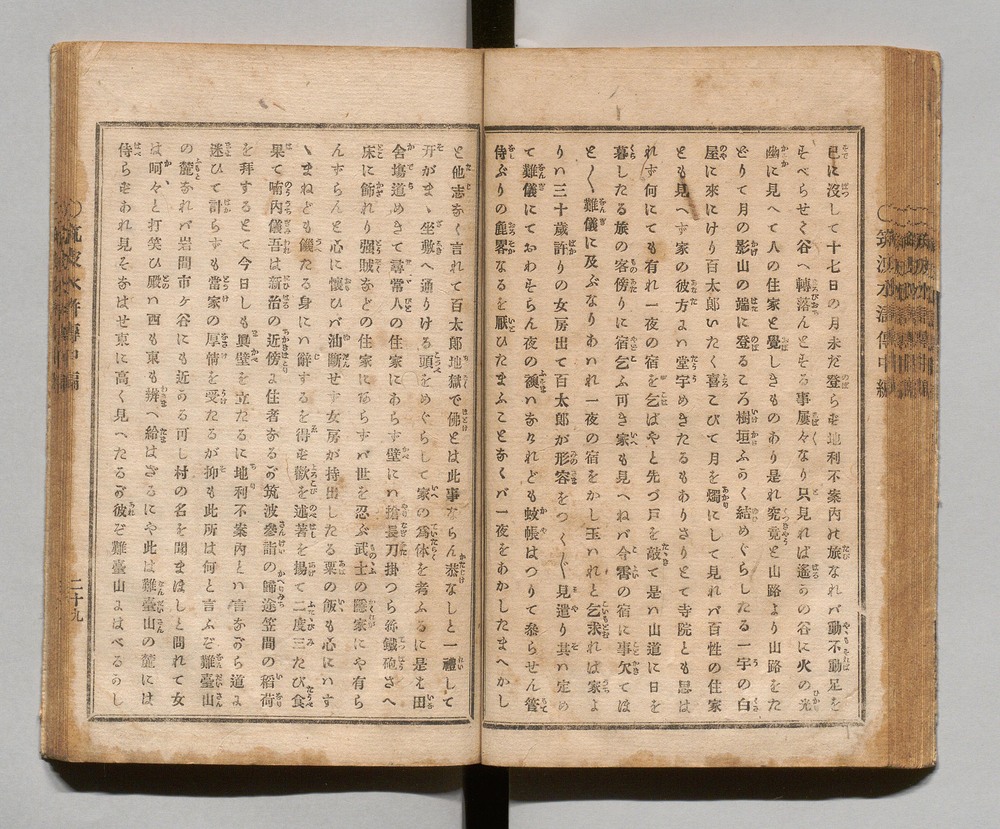 已に沒して十七日の月未だ登らず地利不案内の旅なれバ動不動足を
そべらせて谷へ轉落んとする事屢々なり只見れば遙の谷に火の光
幽に見へて人の住家と覺しきものあり是れ究竟と山路より山路をた
どりて月の影山の端に登るころ樹垣ふかく結めぐらしたる一宇の白
屋に來にけり百太郎いたく喜こびて月を燭にして見れバ百性の住家
とも見へず家の彼方よハ堂宇めきたるもありさりとて寺院とも思は
れず何にても有れ一夜の宿を乞ばやと先づ戸を敲て是ハ山道に日を
暮したる旅の客傍りに宿乞ふ可き家も見へねバ今霄の宿に事欠てほ
と〱難儀に及ぶなりあハれ一夜の宿をかし玉ハれと乞求れば家よ
りハ三十歳許りの女房出て百太郎が形容をつく〲見遣り其ハ定め
て難儀にておわすらん夜の襖ハなけれども蚊帳はつりて參らせん管
侍ぶりの麁畧なるを厭ひたまふことなくバ一夜をあかしたまへかし
と他志なく言れて百太郎地獄で佛とは此事ならん恭なしと一禮して
开がまゝ坐敷へ通りける頭をめぐらして家の爲体を考ふるに是も田
舍塲道めきて尋常人の住家にわらず壁にハ揩長刀掛つらね鐵砲さへ
床に飾れり強賊などの住家ならずバ世を忍ぶ武士の隱家にや有ら
んずらんと心に懷ひバ油斷せず女房が持出したる粟の飯も心にハす
ゝまねども饑たる身にハ辭するを得ず歡を述著を揚て二度三たび食
果て喃内儀吾は新治の近傍よ住者なるが筑波參詣の歸途笠間の稻荷
を拜するとて今日しも眞壁を立たるに地利不案内とハ言ながら道よ
迷ひて計らずも當家の厚情を受たるが抑も此所は何と言ふぞ難臺山
の麓なれバ岩間市ヶ谷にも近かる可し村の名を聞まほしと問れて女
は呵々と打笑ひ殿ハ西も東も辨へ給はざるにや此は難臺山の麓には
侍らずあれ見そなはせ東に高く見へたるが彼ぞ難臺山よはべるるし
筑波水滸傳中編
二十九
筑波水滸傳中編